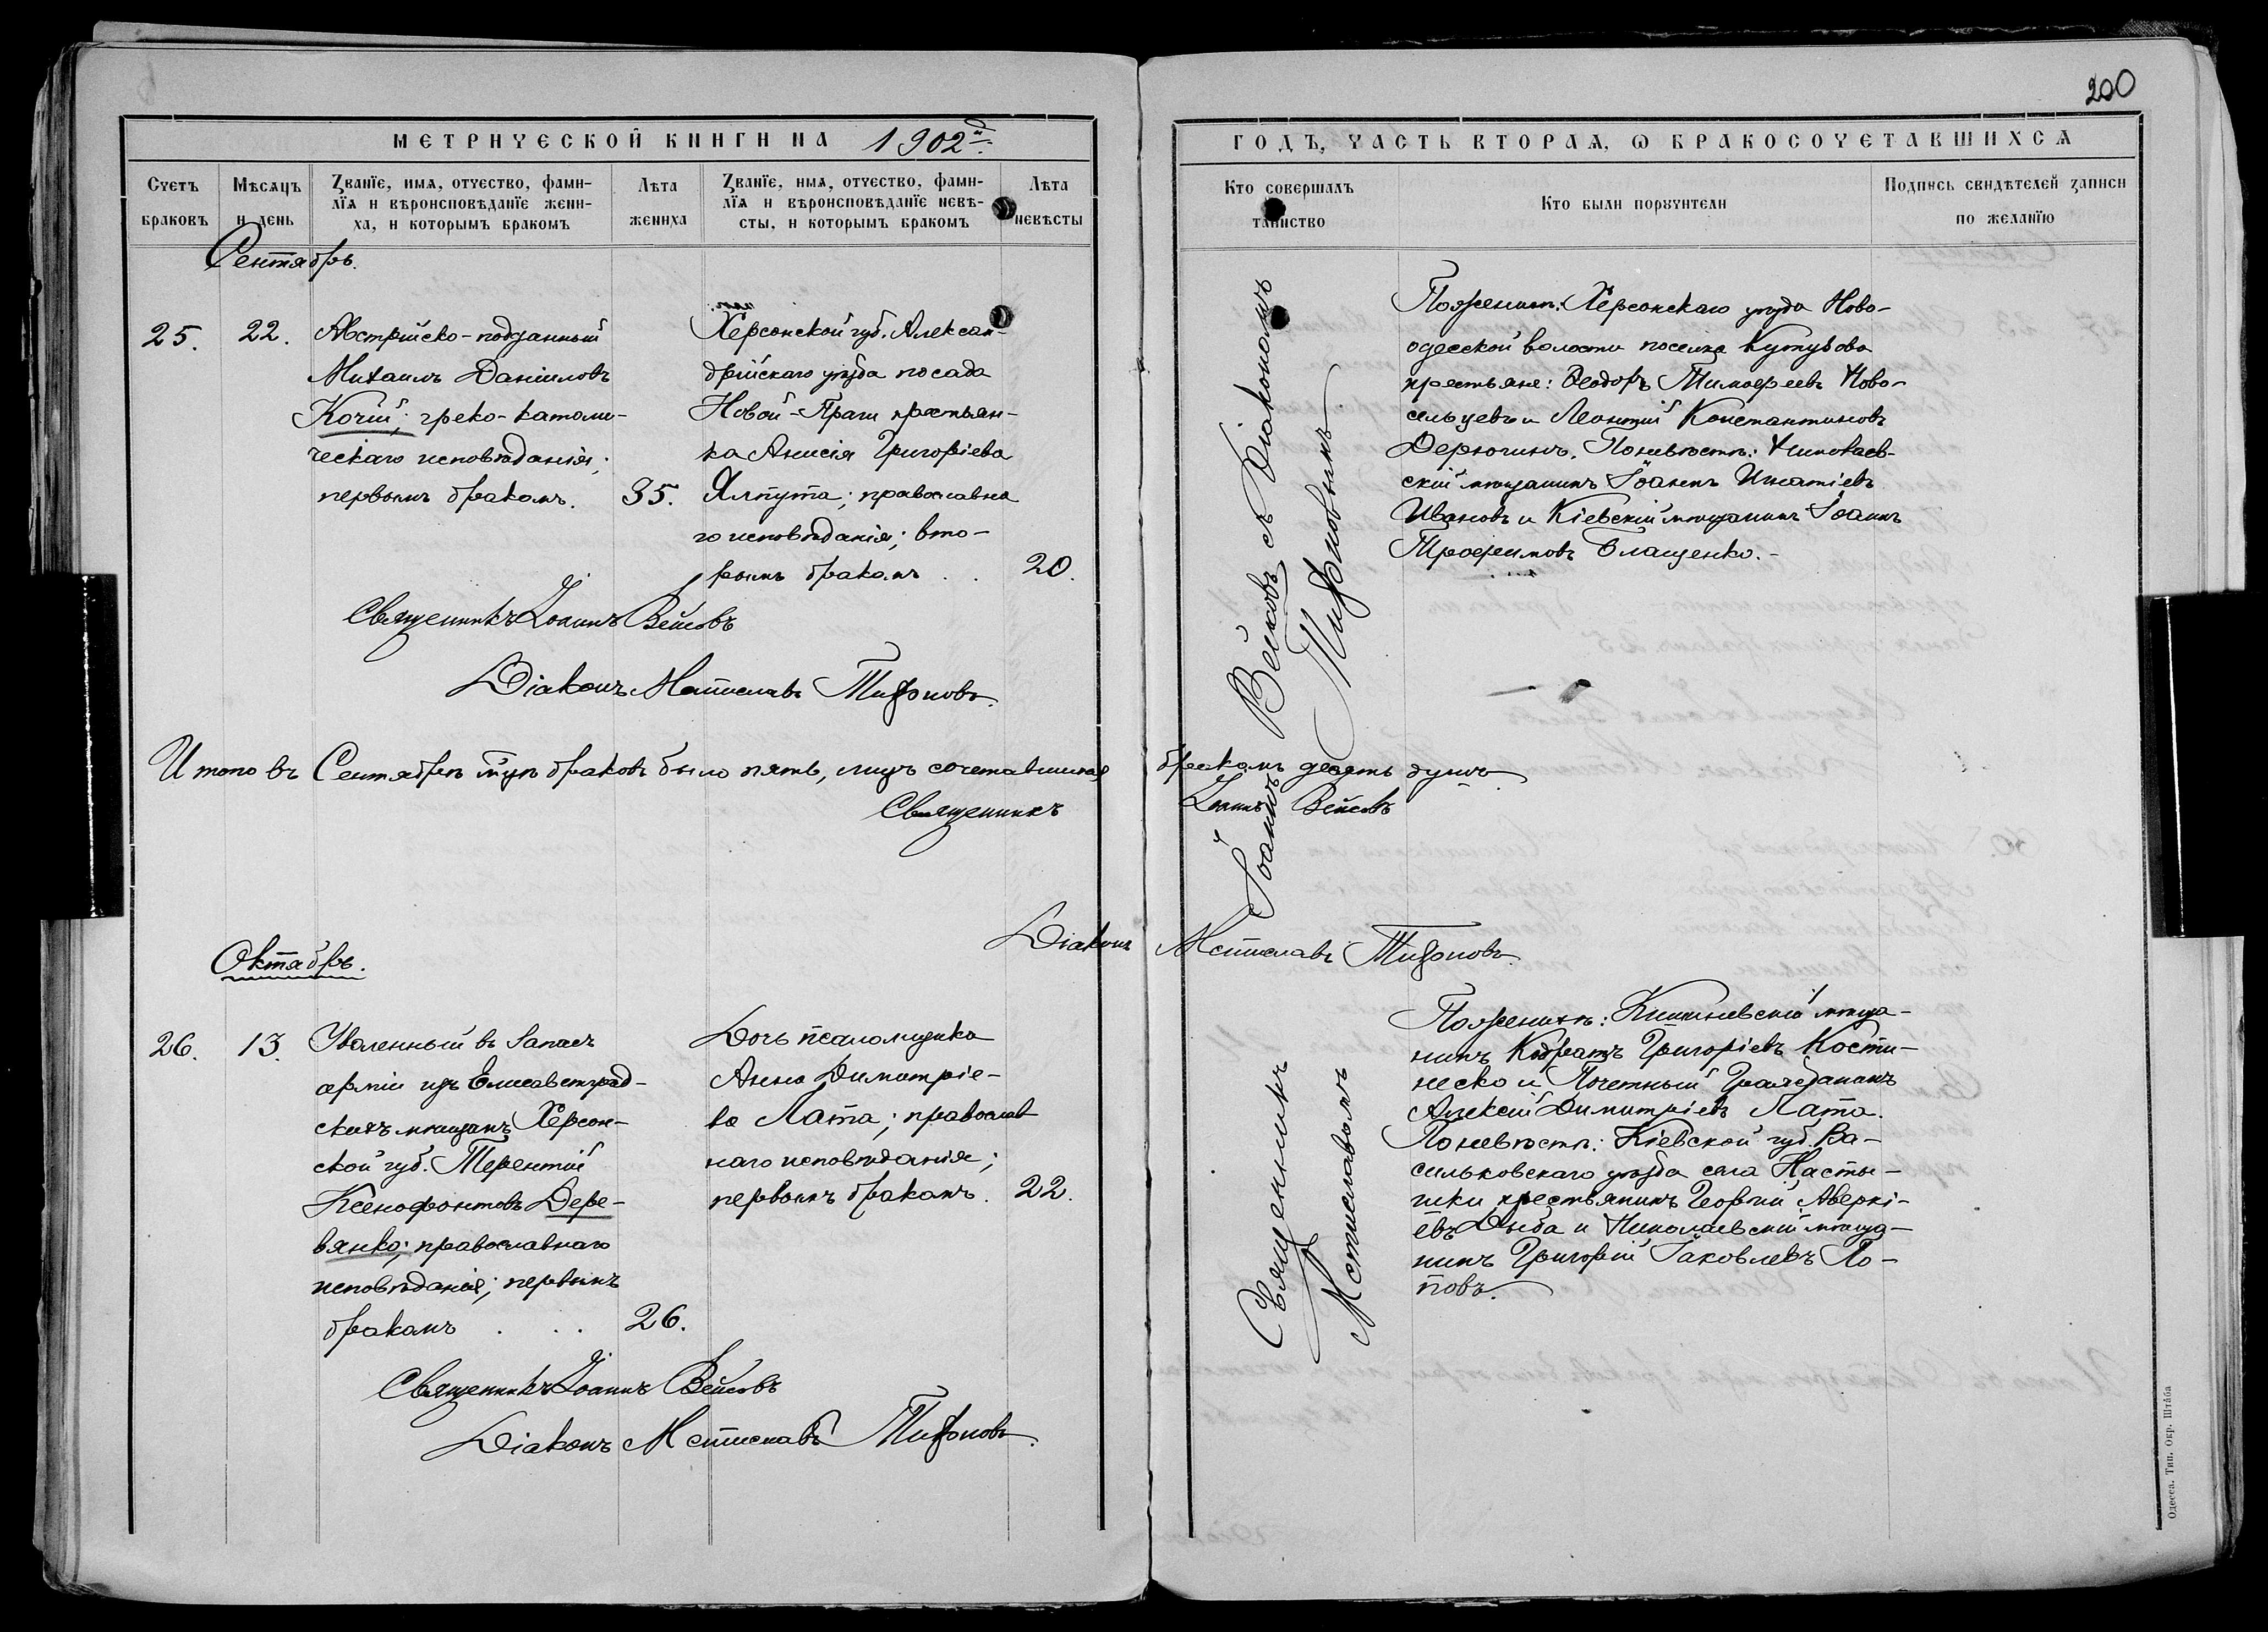 200
МЕТРИЧЕСКОЙ КНИГИ НА 1902й.
ГОДЪ, ЧАСТЬ ВТОРАЯ, Ѡ БРАКОСОЧЕТАВШИХСѦ
Счетъ браковъ
Мѣсяцъ и день
Званїе, имя, отчество, фами-
лїя и вѣроисповѣданїе жени-
ха, и которымъ бракомъ
Лѣта жениха
Званїе, имя, отчество, фами-
лїя и вѣроисповѣданїе невѣ-
сты, и которымъ бракомъ
Лѣта невѣсты
Кто совершалъ таинство
Кто были поручители
Подпись свидѣтелей записи
по желанїю
Сентябрь.
25.
22.
Австрійско-подданный
Михаилъ Даніиловъ
Кочій; греко-католи-
ческаго исповѣданія;
первымъ бракомъ.
35.
Херсонской губ. Алексан-
дрійскаго уѣзда посада
Новой-Праги крестьян-
ка Анисія Григоріева
Ялпута; православна
го исповѣданія; вто-
рымъ бракомъ . .
20.
Іоаннъ Вейсовъ съ Діакономъ
Тифоновымъ
По женихѣ: Херсонскаго уѣзда Ново-
одесской волости поселка Кутузова
крестьяне: Ѳеодоръ Тимоѳеевъ Ново-
сельцевъ и Леонтій Константиновъ
Дерюгинъ. По невѣстѣ: Николаев-
скій мѣщанинъ Іоаннъ Игнатіевъ
Ивановъ и Кіевскій мѣщанинъ Іоаннъ
Трофимовъ Блащенко.-
Священникъ Іоаннъ Вейсовъ
Діаконъ Мстиславъ Тифоновъ.
Итого въ Сентябрѣ м-цѣ браковъ было пять, лицъ сочетавшихся бракомъ десять душъ.
Священникъ Іоаннъ Вейсовъ
Діаконъ Мстиславъ Тифоновъ.
Октябрь.
26.
13.
Уволенный въ Запасъ
арміи изъ Елисаветград-
скихъ мѣщанъ Херсон-
ской губ. Терентій
Ксенофонтовъ Дере-
вянко; православнаго
исповѣданія; первымъ
бракомъ . . .
26.
Дочь псаломщика
Анна Димитріе-
ва Лата; православ
наго исповѣданія;
первымъ бракомъ.
22.
Священникъ
Мстиславомъ
По женихѣ: Кишиневскій мѣща-
нинъ Кодратъ Григоріевъ Кости-
неско и Почетный Гражданинъ
Алексій Димитріевъ Лата.
По невѣстѣ: Кіевской губ. Ва-
сильковскаго уѣзда села Насты-
шки крестьянинъ Георгій Аверкі-
евъ Дыба и Николаевскій мѣща-
нинъ Григорій Іаковлевъ По-
повъ.
Священникъ Іоаннъ Вейсовъ
Діаконъ Мстиславъ Тифоновъ.
Одесса. Тип. Окр. Штаба